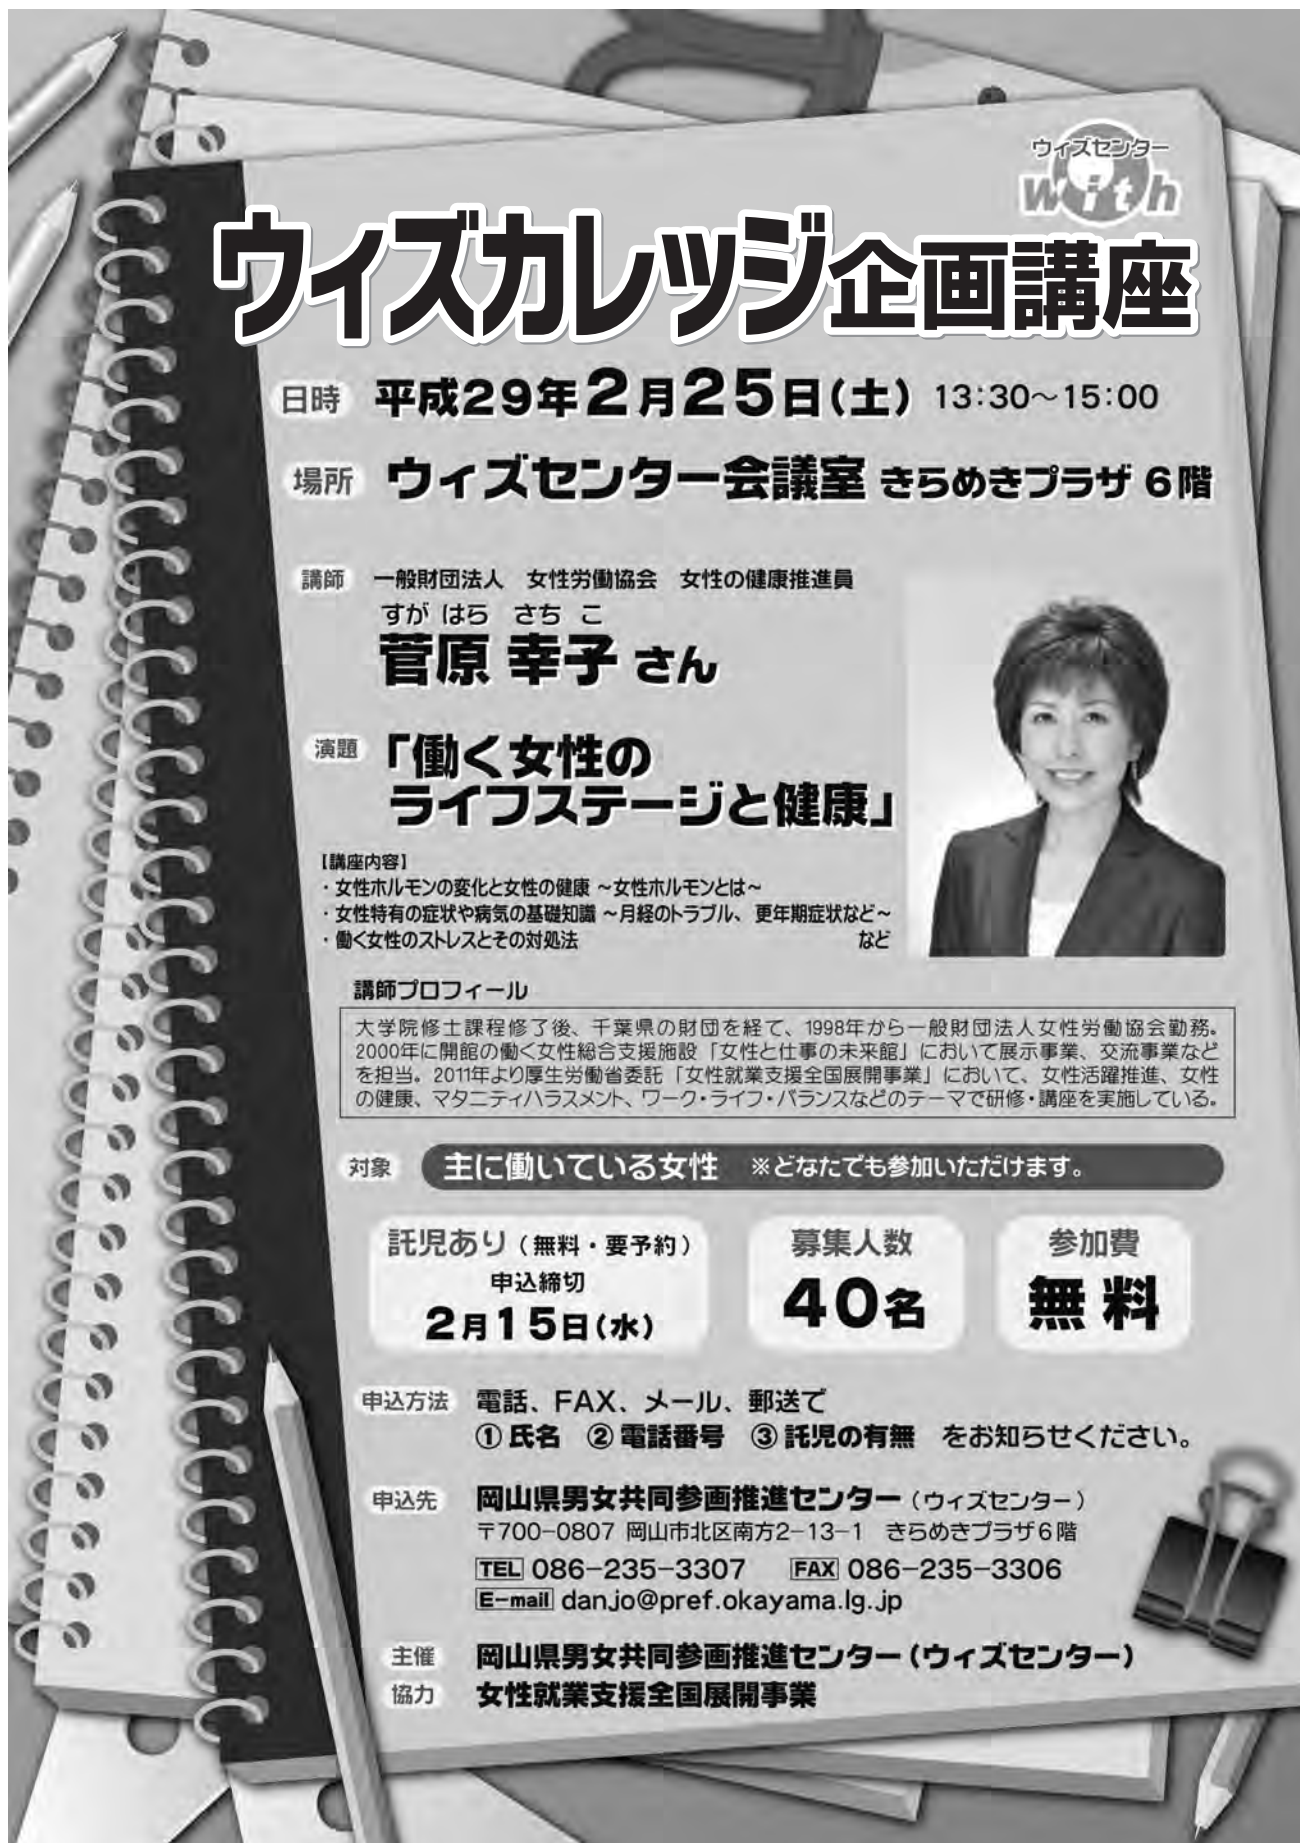 ウィズセンター
with
ウィズカレッジ企画講座
日時 平成29年2月25日(土) 13:30～15:00
場所 ウィズセンター会議室 きらめきプラザ 6階
講師 一般財団法人 女性労働協会 女性の健康推進員
すが はら さち こ
菅原 幸子 さん
演題 「働く女性の
ライフステージと健康」
【講座内容】
・女性ホルモンの変化と女性の健康 ～女性ホルモンとは～
・女性特有の症状や病気の基礎知識 ～月経のトラブル、更年期症状など～
・働く女性のストレスとその対処法 など
講師プロフィール
大学院修士課程修了後、千葉県の財団を経て、1998年から一般財団法人女性労働協会勤務。
2000年に開館の働く女性総合支援施設「女性と仕事の未来館」において展示事業、交流事業など
を担当。2011年より厚生労働省委託「女性就業支援全国展開事業」において、女性活躍推進、女性
の健康、マタニティハラスメント、ワーク・ライフ・バランスなどのテーマで研修・講座を実施している。
対象 主に働いている女性 ※どなたでも参加いただけます。
託児あり（無料・要予約）
申込締切
2月15日(水)
募集人数
40名
参加費
無料
申込方法 電話、FAX、メール、郵送で
① 氏名 ② 電話番号 ③ 託児の有無 をお知らせください。
申込先 岡山県男女共同参画推進センター（ウィズセンター）
〒700-0807 岡山市北区南方2-13-1 きらめきプラザ6階
TEL 086-235-3307 FAX 086-235-3306
E-mail danjo@pref.okayama.lg.jp
主催 岡山県男女共同参画推進センター（ウィズセンター）
協力 女性就業支援全国展開事業